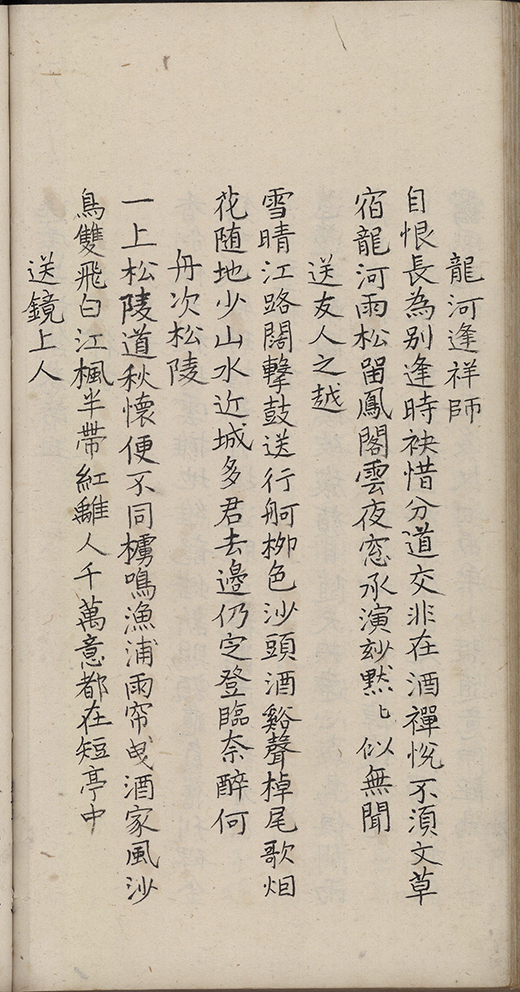 龍河逢祥師
自恨長為別逢時袂惜分道交非在酒禪悅不須文草
宿龍河雨松留鳳閣雲夜窓承演玅黙〻似無聞
送友人之越
雪晴江路闊擊鼓送行舸柳色沙頭酒谿聲棹尾歌烟
花随地少山水近城多君去邉仍定登臨奈醉何
舟次松陵
一上松陵道秋懷便不同櫓鳴漁浦雨帘曵酒家風沙
鳥雙飛白江楓半帶紅離人千萬意都在短亭中
送鏡上人